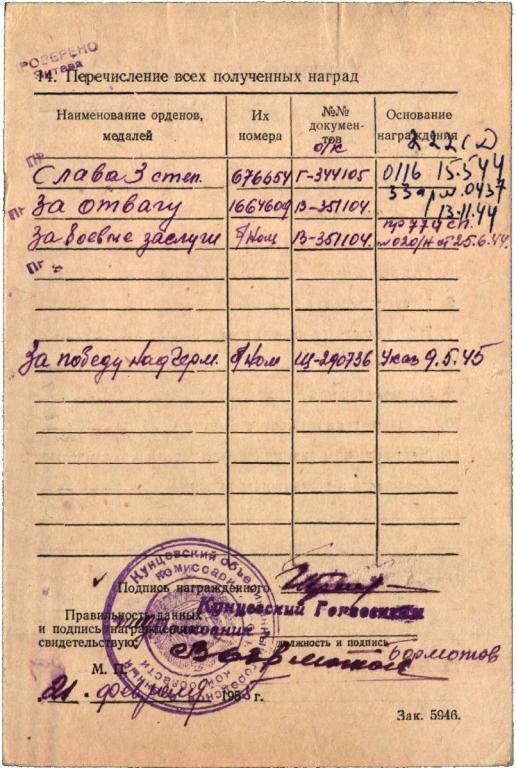 ПРОВЕРЕНО
14. Перечисление всех полученных наград
Наименование орденов, медалей
Их номера
№№ документов
Основание награждения
о/к
222 сд
Слава 3 степ. 676654 Г-344105 0116 15.5.44
За отвагу 1664609 В-351104. 33 а 0437 13.11.44
За боевые заслуги б/ном В-351104. пр 774 сп. №020/н от 25.6.44.
За победу над Герм. б/ном Щ-290736 Указ 9.5.45
Подпись награжденного
Кунцевский Горвоенком
Правильность данных
и подпись награжденного
свидетельствую:
должность и подпись
Бормотов
М. П.
21. февраля 1958 г.
Зак. 5946.